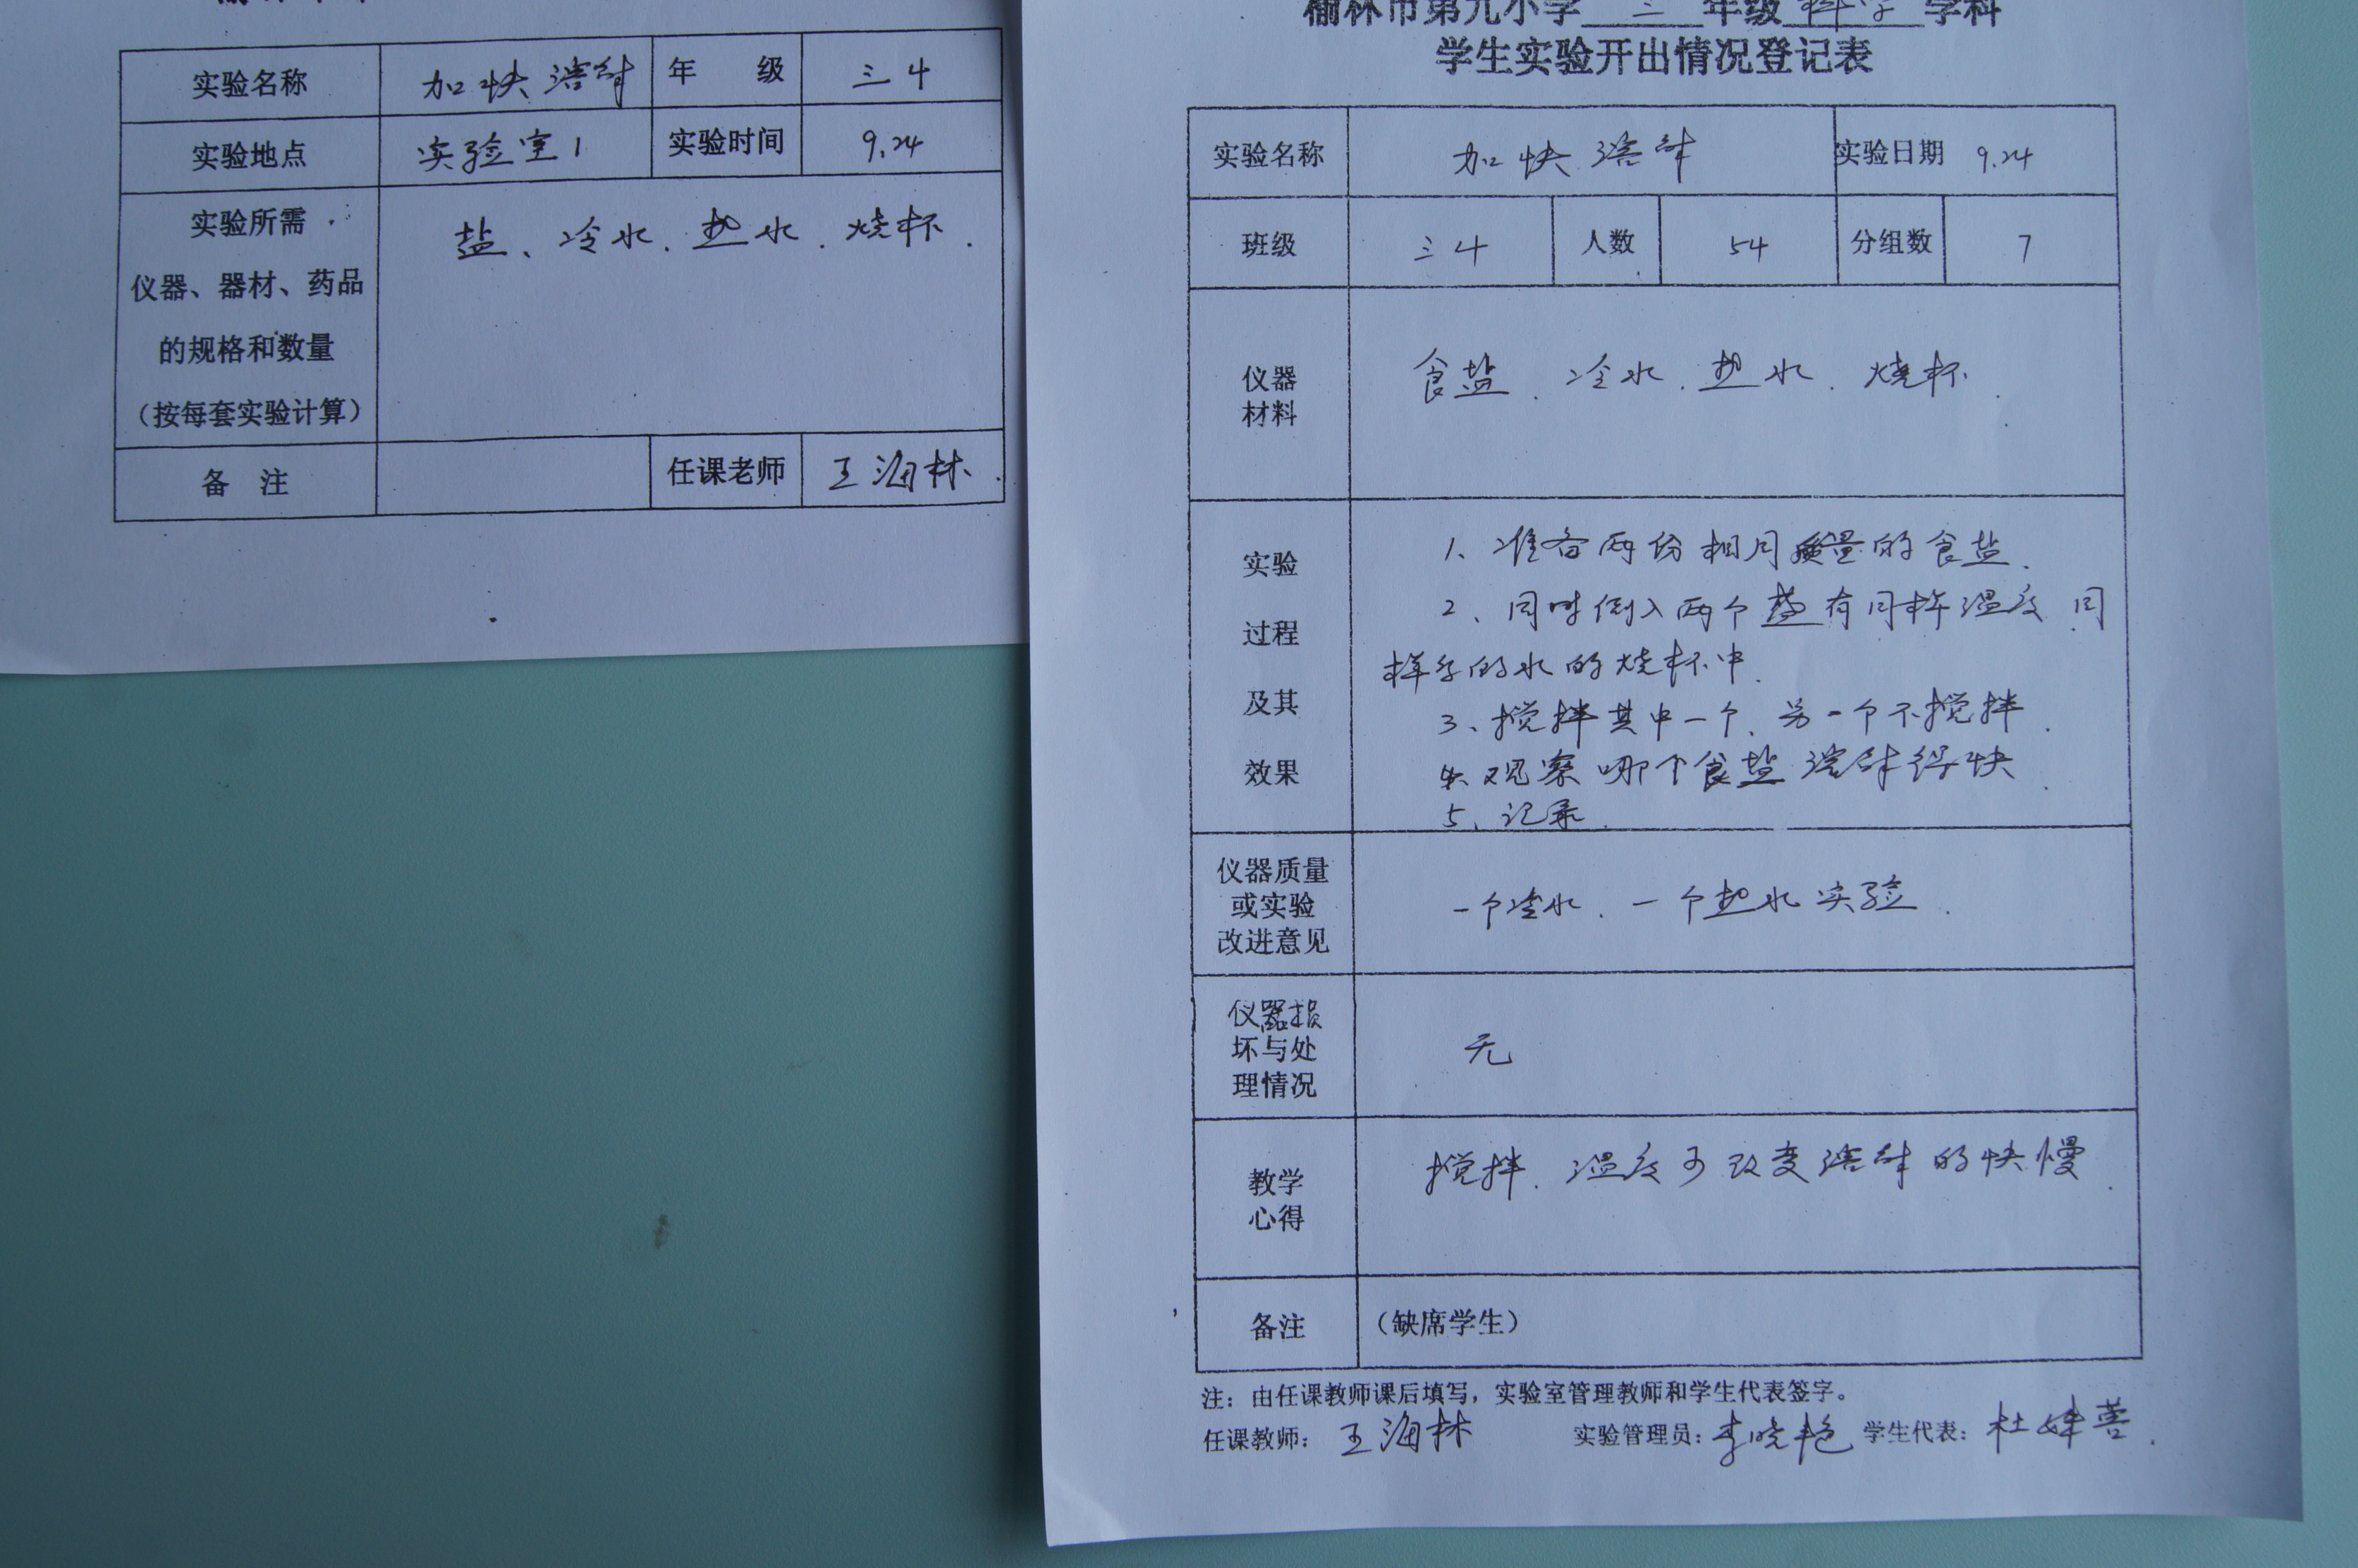 实验名称 加快溶解 年 级 三4
实验地点 实验室1 实验时间 9.24
实验所需
仪器、器材、药品
的规格和数量
（按每套实验计算）
盐、冷水、热水、烧杯.
备 注 任课老师 王海林
榆林市第九小学 三 年级 科学 学科
学生实验开出情况登记表
实验名称 加快溶解 实验日期 9.24
班级 三4 人数 54 分组数 7
仪器
材料
食盐、冷水、热水、烧杯.
实验
过程
及其
效果
1、准备两份相同质量的食盐.
2、同时倒入两个装有同样温度同
样多的水的烧杯中.
3、搅拌其中一个、另一个不搅拌.
4、观察哪个食盐溶解得快.
5、记录.
仪器质量
或实验
改进意见
一个冷水、一个热水实验.
仪器损
坏与处
理情况
无
教学
心得
搅拌、温度可改变溶解的快慢.
备注 （缺席学生）
注：由任课教师课后填写，实验室管理教师和学生代表签字。
任课教师： 王海林 实验管理员：李晓艳 学生代表：杜